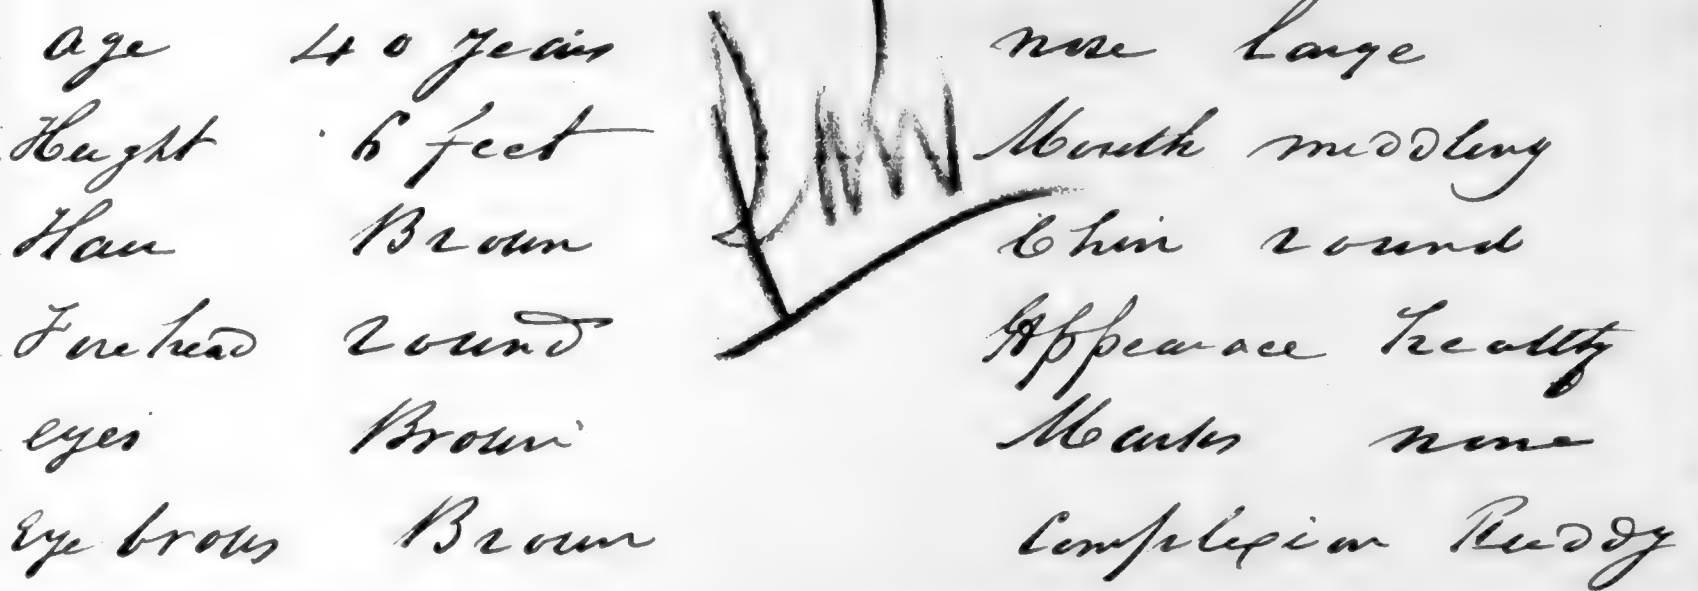 age 40 years
Height 6 feet
Hair Brown
Forehead round
eyes Brown
Eye brows Brown
nose large
Mouth middling
Chin round
Appearace healthy
Marks none
Complexion Ruddy